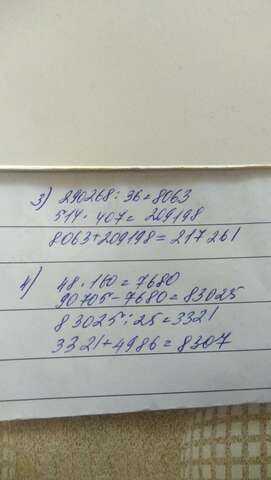 3) 290268 : 36 = 8063
514 · 407 = 209198
8063 + 209198 = 217261
4) 48 · 160 = 7680
90705 - 7680 = 83025
83025 : 25 = 3321
3321 + 4986 = 8307